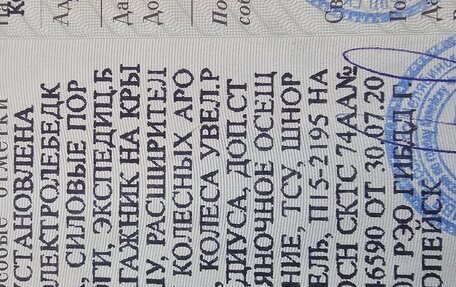 собые отметки
УСТАНОВЛЕНА
ЭЛЕКТРОЛЕБЕДК
СИЛОВЫЕ ПОР
ГИ, ЭКСПЕДИЦ.Б
ГАЖНИК НА КРЫ
У, РАСШИРИТЕЛ
КОЛЕСНЫХ АРО
КОЛЕСА УВЕЛ.Р
ДИУСА, ДОП.СТ
ЯНОЧНОЕ ОСЕЩ
НИЕ, ТСУ, ШНОР
ЕЛЬ, П15-2195 НА
ОСН СКТС 74АА№
46590 ОТ 30.07.20
ОГ РЭО ГИБДД Г.
ОПЕЙСК